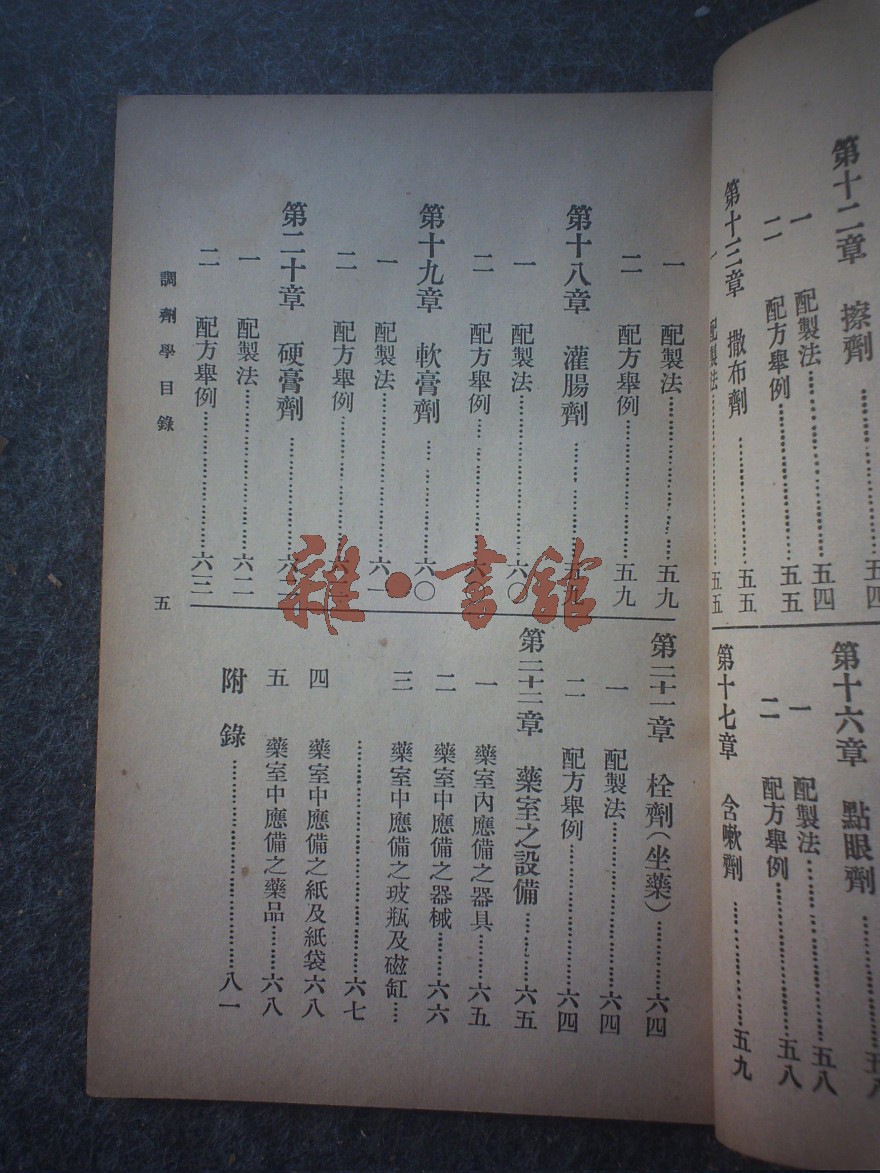 第十二章 擦劑……五四
一 配製法……五四
二 配方舉例……五五
第十三章 撒布劑……五五
一 配製法……五五
第十六章 點眼劑……五八
一 配製法……五八
二 配方舉例……五八
第十七章 含嗽劑……五九
一 配製法……五九
二 配方舉例……五九
第十八章 灌腸劑……五九
一 配製法……六〇
二 配方舉例……六
第十九章 軟膏劑……六〇
一 配製法……六一
二 配方舉例……六
第二十章 硬膏劑……六
一 配製法……六二
二 配方舉例……六三
第二十一章 栓劑(坐藥)……六四
一 配製法……六四
二 配方舉例……六四
第二十二章 藥室之設備……六五
一 藥室內應備之器具……六五
二 藥室中應備之器械……六六
三 藥室中應備之玻瓶及磁缸……
……六七
四 藥室中應備之紙及紙袋六八
五 藥室中應備之藥品……六八
附錄……八一
調劑學目錄
五
雜·書館